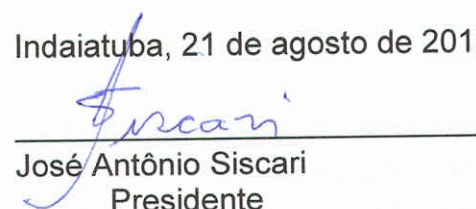 Indaiatuba, 21 de agosto de 201
Siscari
José Antônio Siscari
Presidente